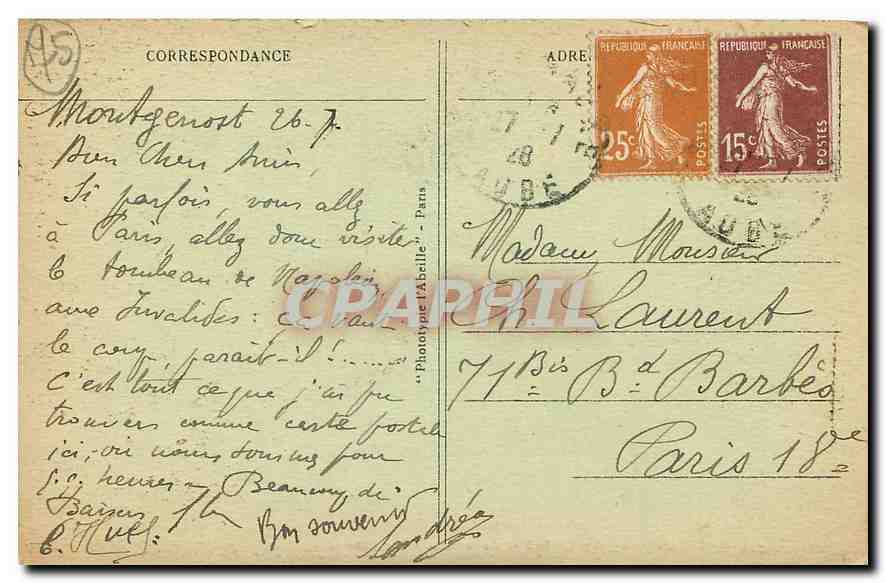 95
CORRESPONDANCE
Montgenost 26-7.
Bien Chers Amis,
Si parfois, vous allez
à Paris, allez donc visiter
le tombeau de Napoléon
aux Invalides: ça vaut
le coup, parait-il! ......
C'est tout ce que j'ai pu
trouver comme carte postale
ici, où nous sommes pour
heures. Beaucoup de
Baisers
Bon souvenir
Andrée
"Phototypie l'Abeille" - Paris
ADRE
REPUBLIQUE FRANÇAISE
25c
POSTES
REPUBLIQUE FRANÇAISE
15c
POSTES
27-7
28
AUBE
AUBE
Madame Monsieur
Ch. Laurent
71 Bis Bd Barbès
Paris 18e
CPARPHIL